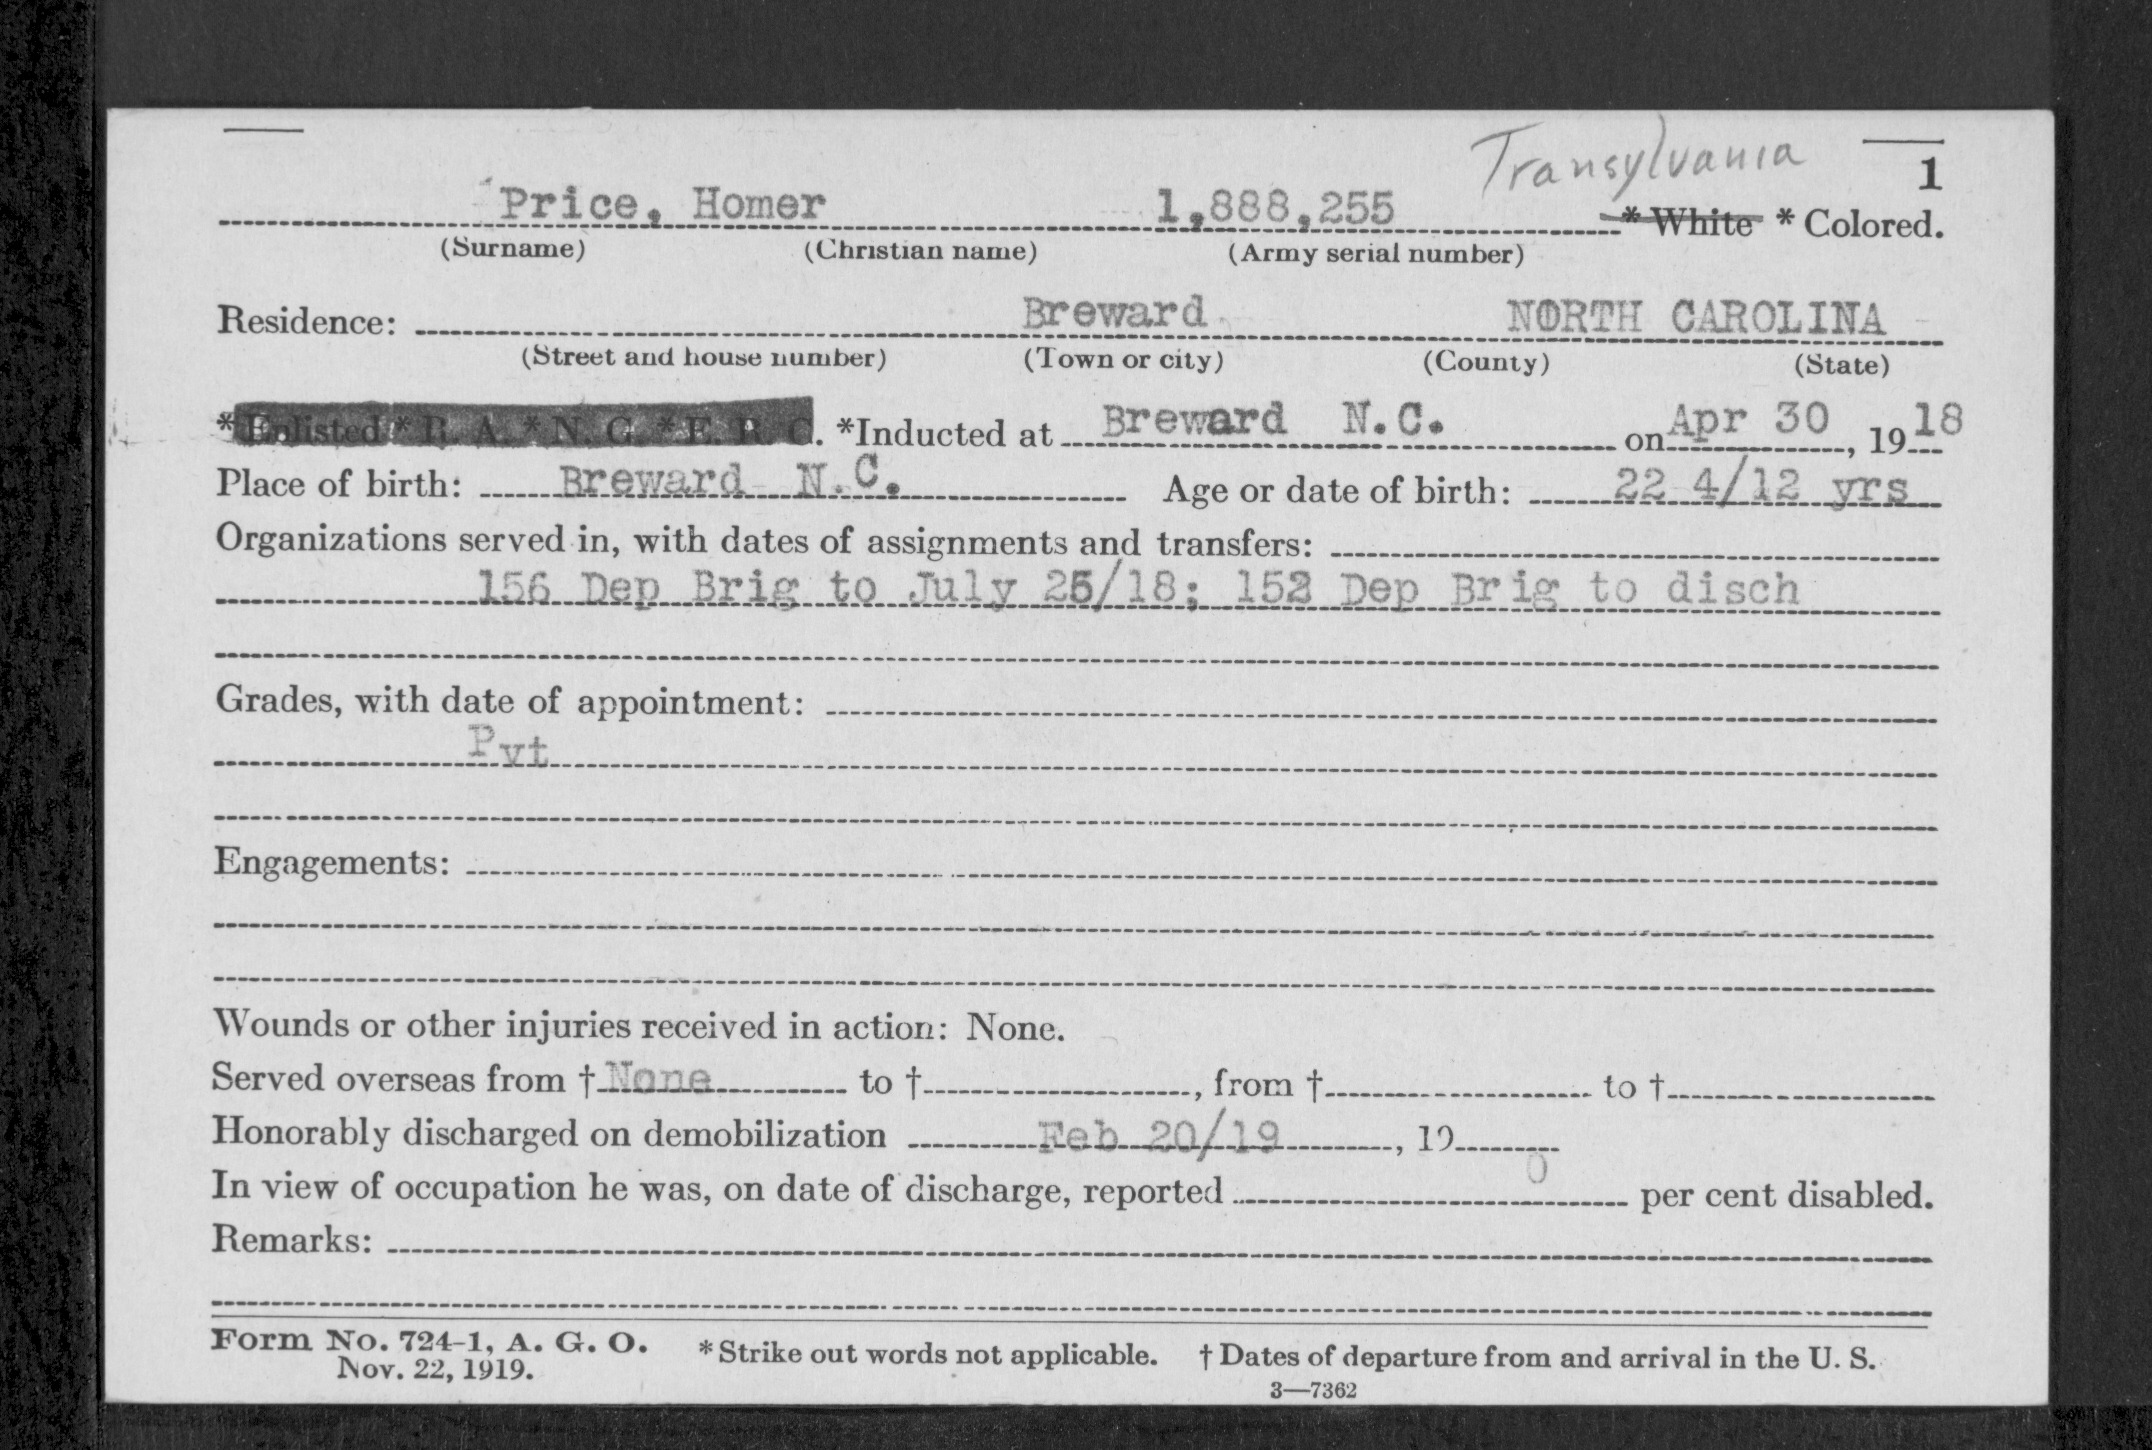 Transylvania 1
Price, Homer 1,888,255 * White * Colored.
(Surname) (Christian name) (Army serial number)
Residence: Breward NORTH CAROLINA
(Street and house number) (Town or city) (County) (State)
*Enlisted * R. A. * N. G. * E. R. C. *Inducted at Breward N.C. on Apr 30, 1918
Place of birth: Breward N.C. Age or date of birth: 22 4/12 yrs
Organizations served in, with dates of assignments and transfers:
156 Dep Brig to July 25/18; 152 Dep Brig to disch
Grades, with date of appointment:
Pvt
Engagements:
Wounds or other injuries received in action: None.
Served overseas from † None to †, from † to †
Honorably discharged on demobilization Feb 20/19, 19
In view of occupation he was, on date of discharge, reported 0 per cent disabled.
Remarks:
Form No. 724-1, A. G. O. * Strike out words not applicable. † Dates of departure from and arrival in the U. S.
Nov. 22, 1919. 3—7362